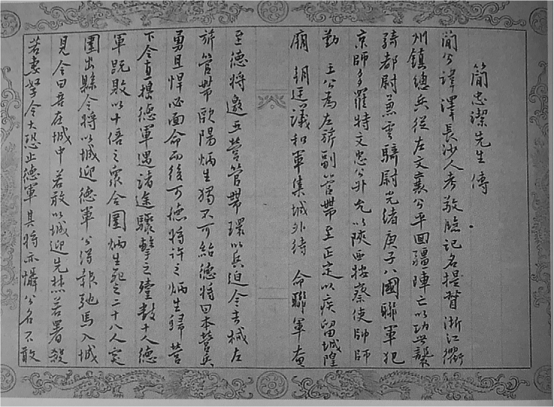 簡忠潔先生傳
簡公諱澤長沙人考敬臨記名提督浙江衢
州鎮總兵從左文襄公平回疆陣亡以功世襲
騎都尉兼雲騎尉光緒庚子八國聯軍犯
京師多羅特文忠公升允以陝西按察使帥師
勤王公為左旂副管帶至正定以疾留城隍
廟朝廷議和軍集城外待命聯軍奄
至德將邀五營管帶環以兵迫令去械左
旂管帶歐陽炳生獨不可紿德將曰本營兵
勇且悍必面命而後可德將許之炳生歸營
下令直撲德軍遇諸途驟擊之殪數十人德
軍既敗以十倍之眾合圍炳生死之二十八人突
圍出縣令將以城迎德軍公得報馳馬入城
見令曰吾在城中若敢以城迎先焚若署殺
若妻孥令大恐止德軍其將亦懾公名不敢